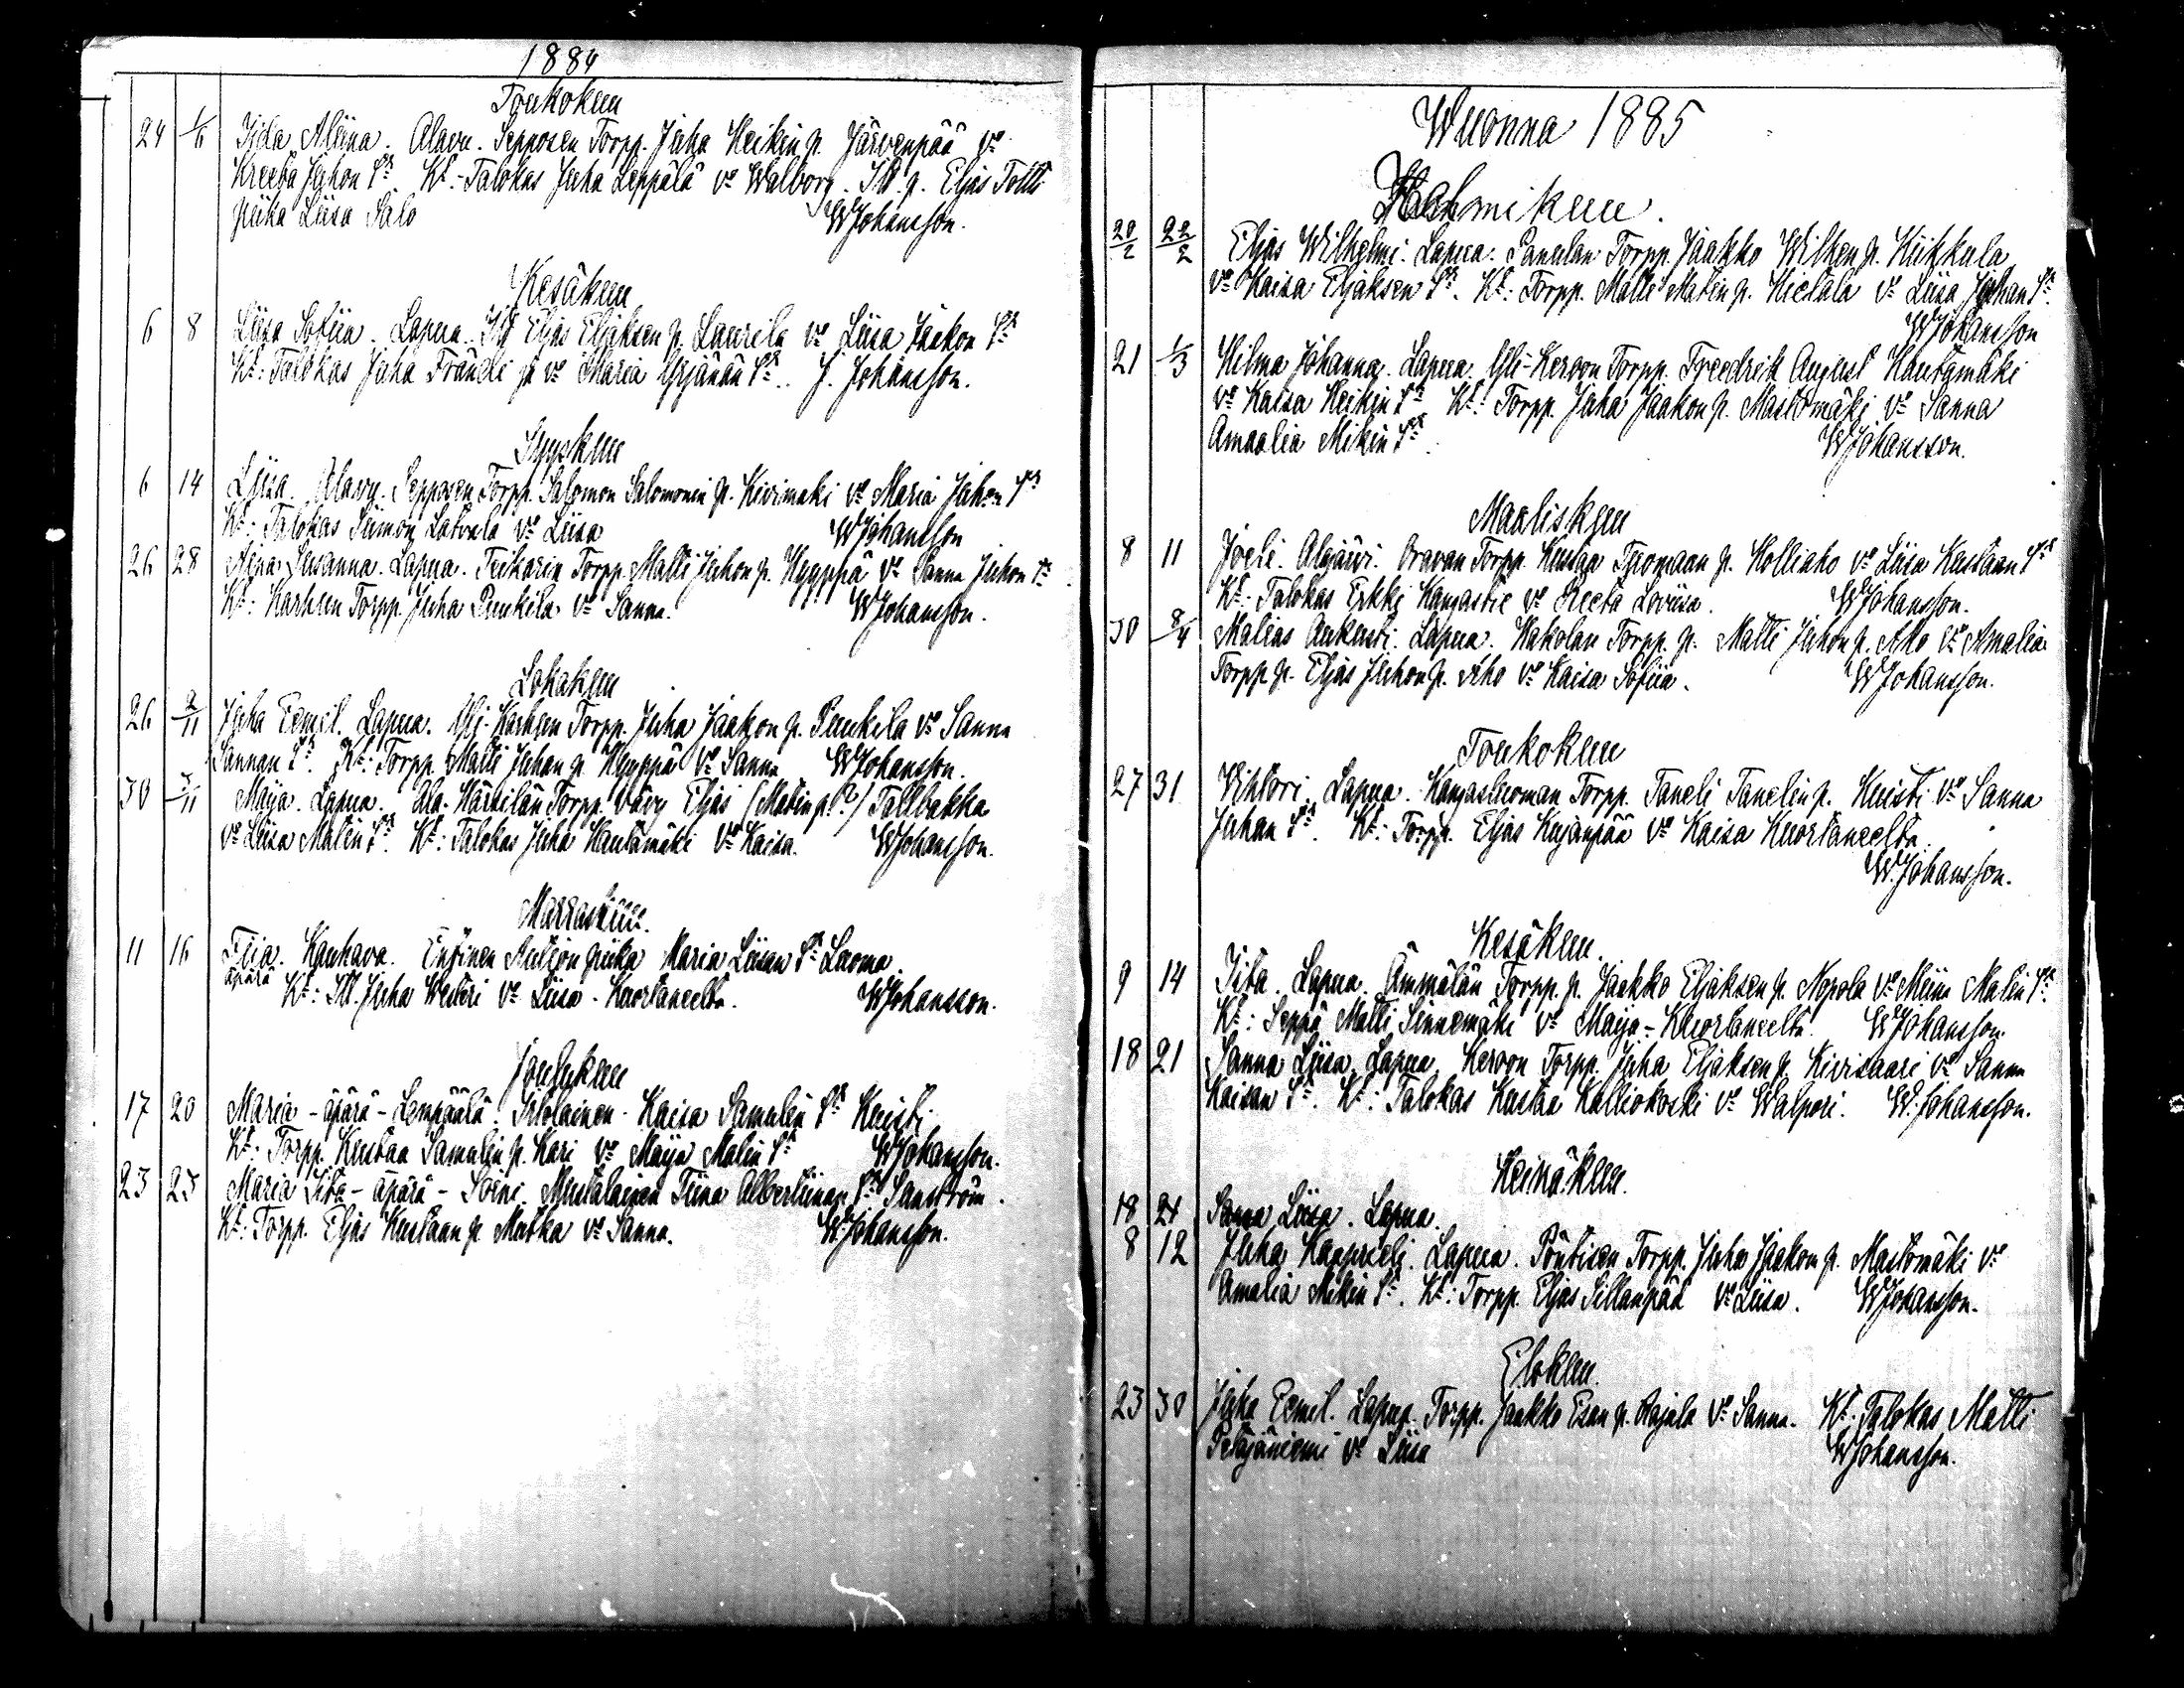 1884
Toukokuu
24 1/6 Iida Aliina. Alavu. Sepposen Torpp. Juha Heikin p. Järvenpää vo
Kreeta Juhon Tr Kt.- Talokas Juha Leppälä vo Walborg. p. Eljas
piika Liisa Salo WJohansson.
Kesäkuu
6 8 Liisa Sofiia. Lapua. Eljas Eljaksen p. Laurila vo Liisa Jaakon Tr
Kt: Talokas Juha Frändi ja vo Maria Yrjänän Tr.. J. Johansson.
Syyskuu
6 14 Liisa. Alavu. Sepposen Torpp. Salomon Salomonin p. Kivimäki vo Maria Juhon Tr
Kt: Talokas Siimon Latvala vo Liisa WJohansson
26 28 Susanna. Lapua. Torpp. Matti Juhon p. Hyyppä vo Sanna Juhon Tr
Kt: Karhuun Torpp. Juha Punkila vo Sanna. WJohansson.
Lokakuu
26 2/11 Juha Eemil. Lapua. Yli-Karhuun Torpp. Juha Jaakon p. Punkila vo Sanna
Sannan Tr. Kt: Torpp. Matti Juhan p. Hyyppä vo Sanna WJohansson.
30 /11 Maija. Lapua. Ala-Härsilän Torpp. Vävy Eljas (Matin p.?) Tallbakka
vo Liisa Matin Tr. Kt: Talokas Juha Hautamäki vo Kaisa. WJohansson.
Marraskuu.
11 16 Fiia. Kauhava. Entinen piika Maria Liisan Tr Luoma
äpärä Kt: Itl. Juha vo Liisa - Kuortaneelta. WJohansson.
Joulukuu
17 20 Maria - äpärä - Lempäälä. Itlolainen. Kaisa Samulin Tr Kuisti
Kt: Torpp. Kustaa Samulin p. Kari vo Maija Matin Tr WJohansson.
23 25 Maria Iita - äpärä - Soini. Mustalainen Tiina Albertiinan Tr Sanström.
Kt: Torpp. Eljas Kustaan p. Matka vo Sanna. WJohansson.
Wuonna 1885
Helmikuu.
20/2 22/2 Eljas Wilhelmi. Lapua. Torpp. Jaakko Wilhen p. Kiikkala
vo Kaisa Eljaksen Tr. Kt: Torpp. Matti Matin p. Hietala vo Liisa Juhan Tr.
WJohansson
21 1/3 Hilma Johanna. Lapua. Yli-Hervon Torpp. Freedrik August Hautamäki
vo Kaisa Heikin Tr Kt: Torpp. Juha Jaakon p. Mastomäki vo Sanna
Amaalia Mikin Tr. WJohansson.
Maaliskuu
8 11 Joeli. Alajärvi. Oravan Torpp. Kustaa Tuomaan p. Holliaho vo Liisa Kustaan Tr
Kt: Talokas Erkki Kangastie vo Reeta Loviisa. WJohansson.
30 8/4 Matias Aukusti. Lapua. Hakolan Torpp. p. Matti Juhon p. Aho vo Amalia
Torpp. p. Eljas Juhon p. Aho vo Kaisa Sofiia. WJohansson.
Toukokuu
27 31 Wihtori. Lapua. Kangasluoman Torpp. Taneli Tanelin p. Kuisti vo Sanna
Juhan Tr. Kt: Torpp. Eljas Kujanpää vo Kaisa Kuortaneelta.
W.Johansson.
Kesäkuu.
9 14 Iita. Lapua. Ämmälän Torpp. p. Jaakko Eljaksen p. Nopola vo Miina Matin Tr.
Kt: Seppä Matti Sinnemäki vo Maija - Kuortaneelta. WJohansson.
18 21 Sanna Liisa. Lapua. Hervon Torpp. Juha Eljaksen p. Kivisaari vo Sanna
Kaisan Tr. Kt: Talokas Kustaa Kalliokoski vo Walpori. W.Johansson.
Heinäkuu.
18 21 Sanna Liisa. Lapua.
8 12 Juha Kaaprieli. Lapua. Pöntisen Torpp. Juha Jaakon p. Mastomäki vo
Amalia Mikin Tr. Kt: Torpp. Eljas Sillanpää vo Liisa. WJohansson.
Elokuu.
23 30 Juha Eemil. Lapua. Torpp. Jaakko Esan p. Rajala vo Sanna. Kt: Talokas Matti
Petäjäniemi vo Liisa WJohansson.